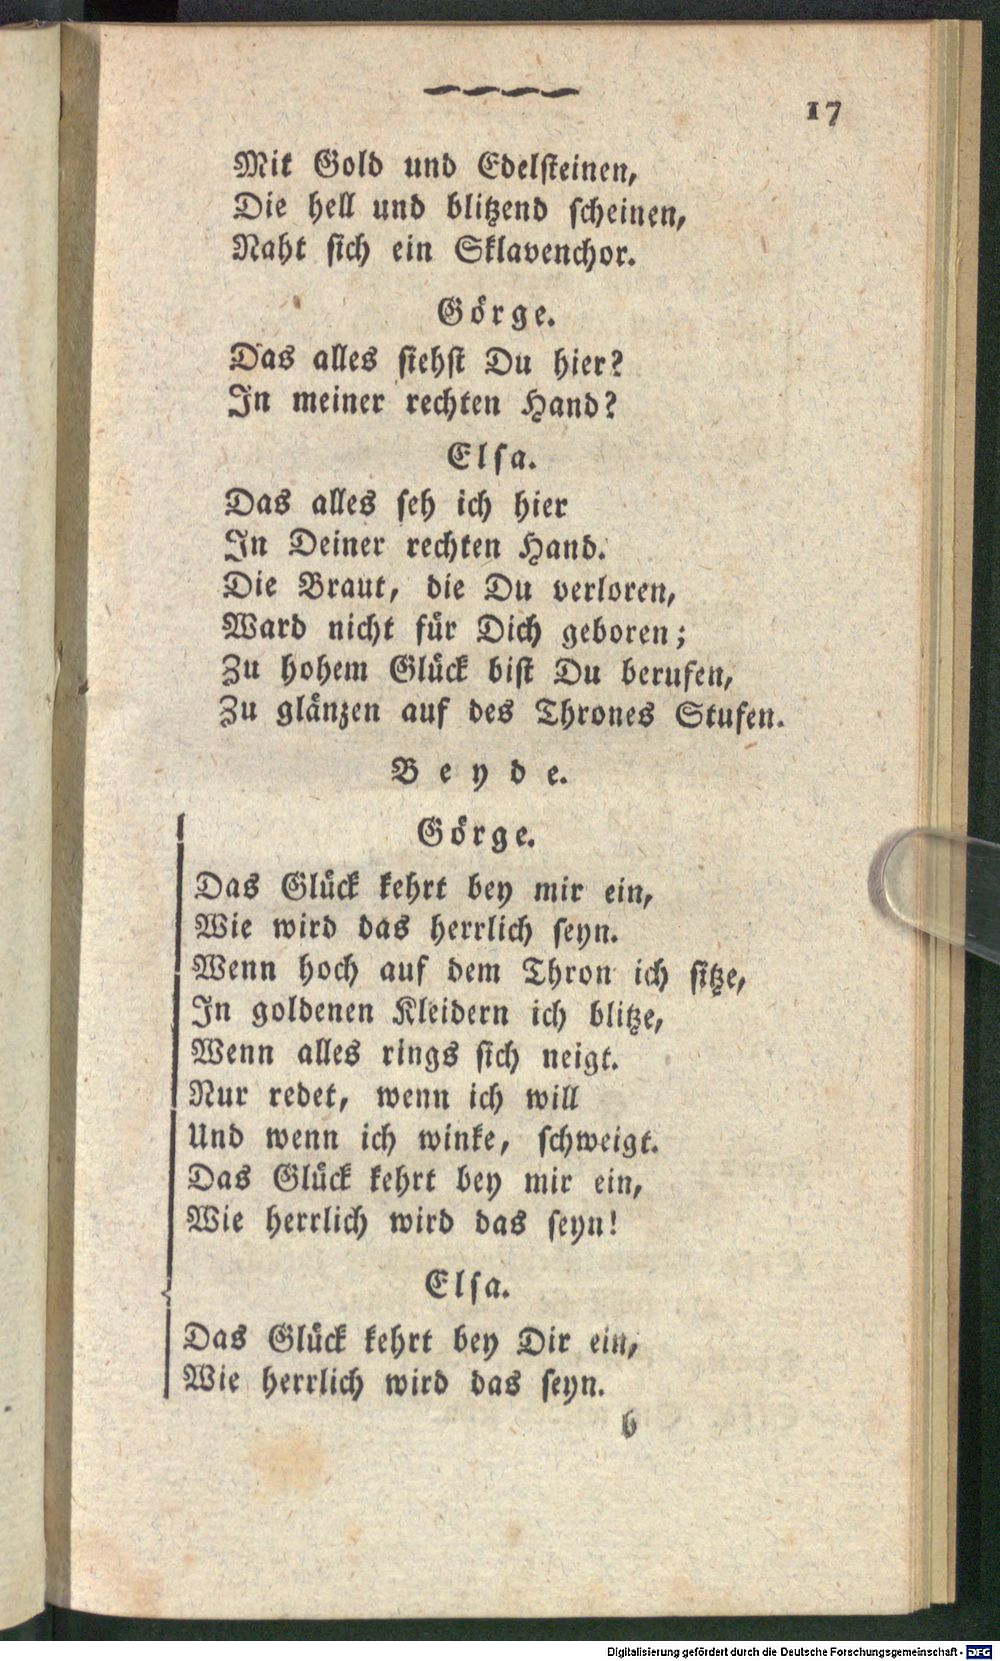 17
Mit Gold und Edelſteinen,
Die hell und blitzend ſcheinen,
Naht ſich ein Sklavenchor.
Görge.
Das alles ſiehſt Du hier?
In meiner rechten Hand?
Elſa.
Das alles ſeh ich hier
In Deiner rechten Hand.
Die Braut, die Du verloren,
Ward nicht für Dich geboren;
Zu hohem Glück biſt Du berufen,
Zu glänzen auf des Thrones Stufen.
Beyde.
Görge.
Das Glück kehrt bey mir ein,
Wie wird das herrlich ſeyn.
Wenn hoch auf dem Thron ich ſitze,
In goldenen Kleidern ich blitze,
Wenn alles rings ſich neigt.
Nur redet, wenn ich will
Und wenn ich winke, ſchweigt.
Das Glück kehrt bey mir ein,
Wie herrlich wird das ſeyn!
Elſa.
Das Glück kehrt bey Dir ein,
Wie herrlich wird das ſeyn.
b
Digitalisierung gefördert durch die Deutsche Forschungsgemeinschaft - DFG